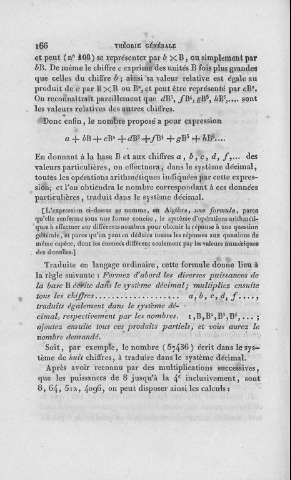 166 THÉORIE GÉNÉRALE
et peut (n° 108) se représenter par b × B, ou simplement par
bB. De même le chiffre c exprime des unités B fois plus grandes
que celles du chiffre b; ainsi sa valeur relative est égale au
produit de c par B × B ou B², et peut être représentée par cB².
On reconnaîtrait pareillement que dB³, fB⁴, gB⁵, hB⁶,.... sont
les valeurs relatives des autres chiffres.
Donc enfin, le nombre proposé a pour expression
a + bB + cB² + dB³ + fB⁴ + gB⁵ + hB⁶....
En donnant à la base B et aux chiffres a, b, c, d, f,... des
valeurs particulières, on effectuera, dans le système décimal,
toutes les opérations arithmétiques indiquées par cette expres-
sion; et l'on obtiendra le nombre correspondant à ces données
particulières, traduit dans le système décimal.
[L'expression ci-dessus se nomme, en Algèbre, une formule, parce
qu'elle renferme sous une forme concise, le système d'opérations arithméti-
ques à effectuer sur différents nombres pour obtenir la réponse à une question
générale, et parce qu'on peut en déduire toutes les réponses aux questions de
même espèce, dont les énoncés diffèrent seulement par les valeurs numériques
des données.]
Traduite en langage ordinaire, cette formule donne lieu à
la règle suivante : Formez d'abord les diverses puissances de
la base B écrite dans le système décimal; multipliez ensuite
tous les chiffres.................... a, b, c, d, f....,
traduits également dans le système dé-
cimal, respectivement par les nombres. 1, B, B², B³, B⁴, ... ;
ajoutez ensuite tous ces produits partiels, et vous aurez le
nombre demandé.
Soit, par exemple, le nombre (57436) écrit dans le sys-
tème de huit chiffres, à traduire dans le système décimal.
Après avoir reconnu par des multiplications successives,
que les puissances de 8 jusqu'à la 4e inclusivement, sont
8, 64, 512, 4096, on peut disposer ainsi les calculs :